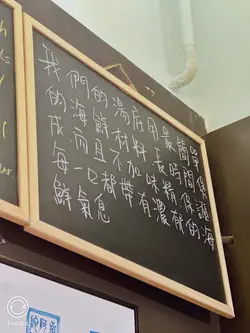 我們的湯底用最簡單
的海鮮材料 長時間煲
成而且不加味精保證
每一口都帶有濃郁的海
鮮氣息